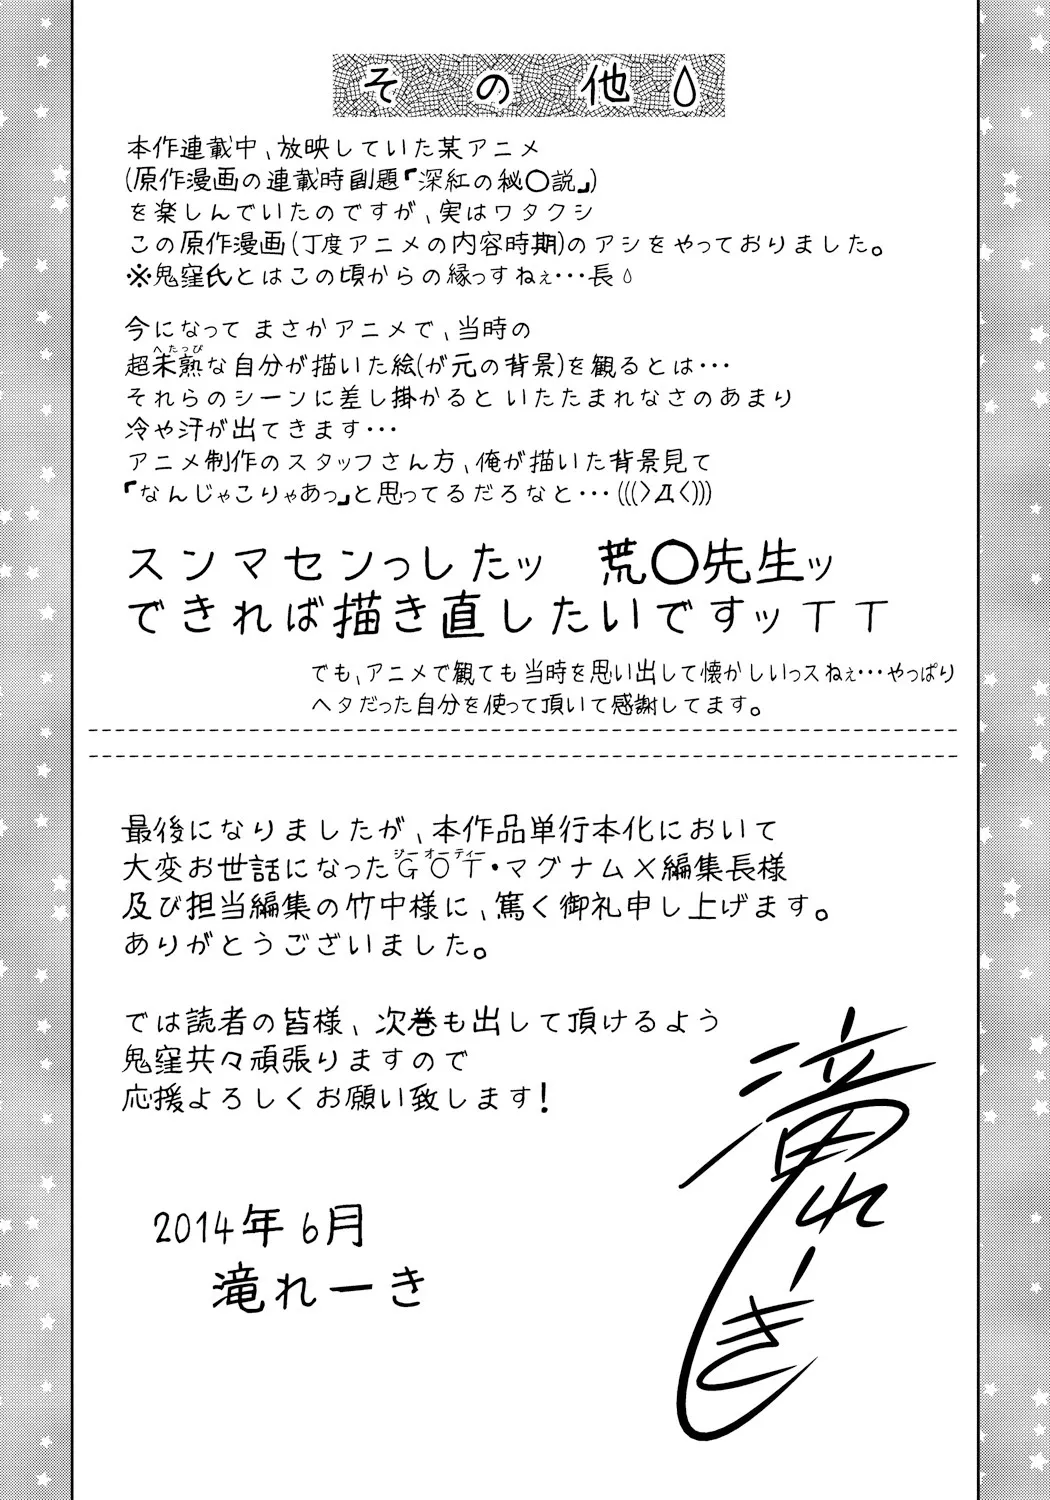 その他
本作連載中、放映していた某アニメ
(原作漫画の連載時副題「深紅の秘〇説」)
を楽しんでいたのですが、実はワタクシ
この原作漫画(丁度アニメの内容時期)のアシをやっておりました。
※鬼窪氏とはこの頃からの縁っすねぇ・・・長
今になって まさかアニメで、当時の
超未熟な自分が描いた絵(が元の背景)を観るとは・・・
へたっぴ
それらのシーンに差し掛かると いたたまれなさのあまり
冷や汗が出てきます・・・
アニメ制作のスタッフさん方、俺が描いた背景見て
「なんじゃこりゃあっ」と思ってるだろなと・・・(((>Д<)))
スンマセンっしたッ 荒〇先生ッ
できれば描き直したいですッTT
でも、アニメで観ても当時を思い出して懐かしいっスねぇ・・・やっぱり
ヘタだった自分を使って頂いて感謝してます。
最後になりましたが、本作品単行本化において
大変お世話になったGOT・マグナムX編集長様
ジーオーティー
及び担当編集の竹中様に、篤く御礼申し上げます。
ありがとうございました。
では読者の皆様、次巻も出して頂けるよう
鬼窪共々頑張りますので
応援よろしくお願い致します!
2014年6月
滝れーき
滝れーき